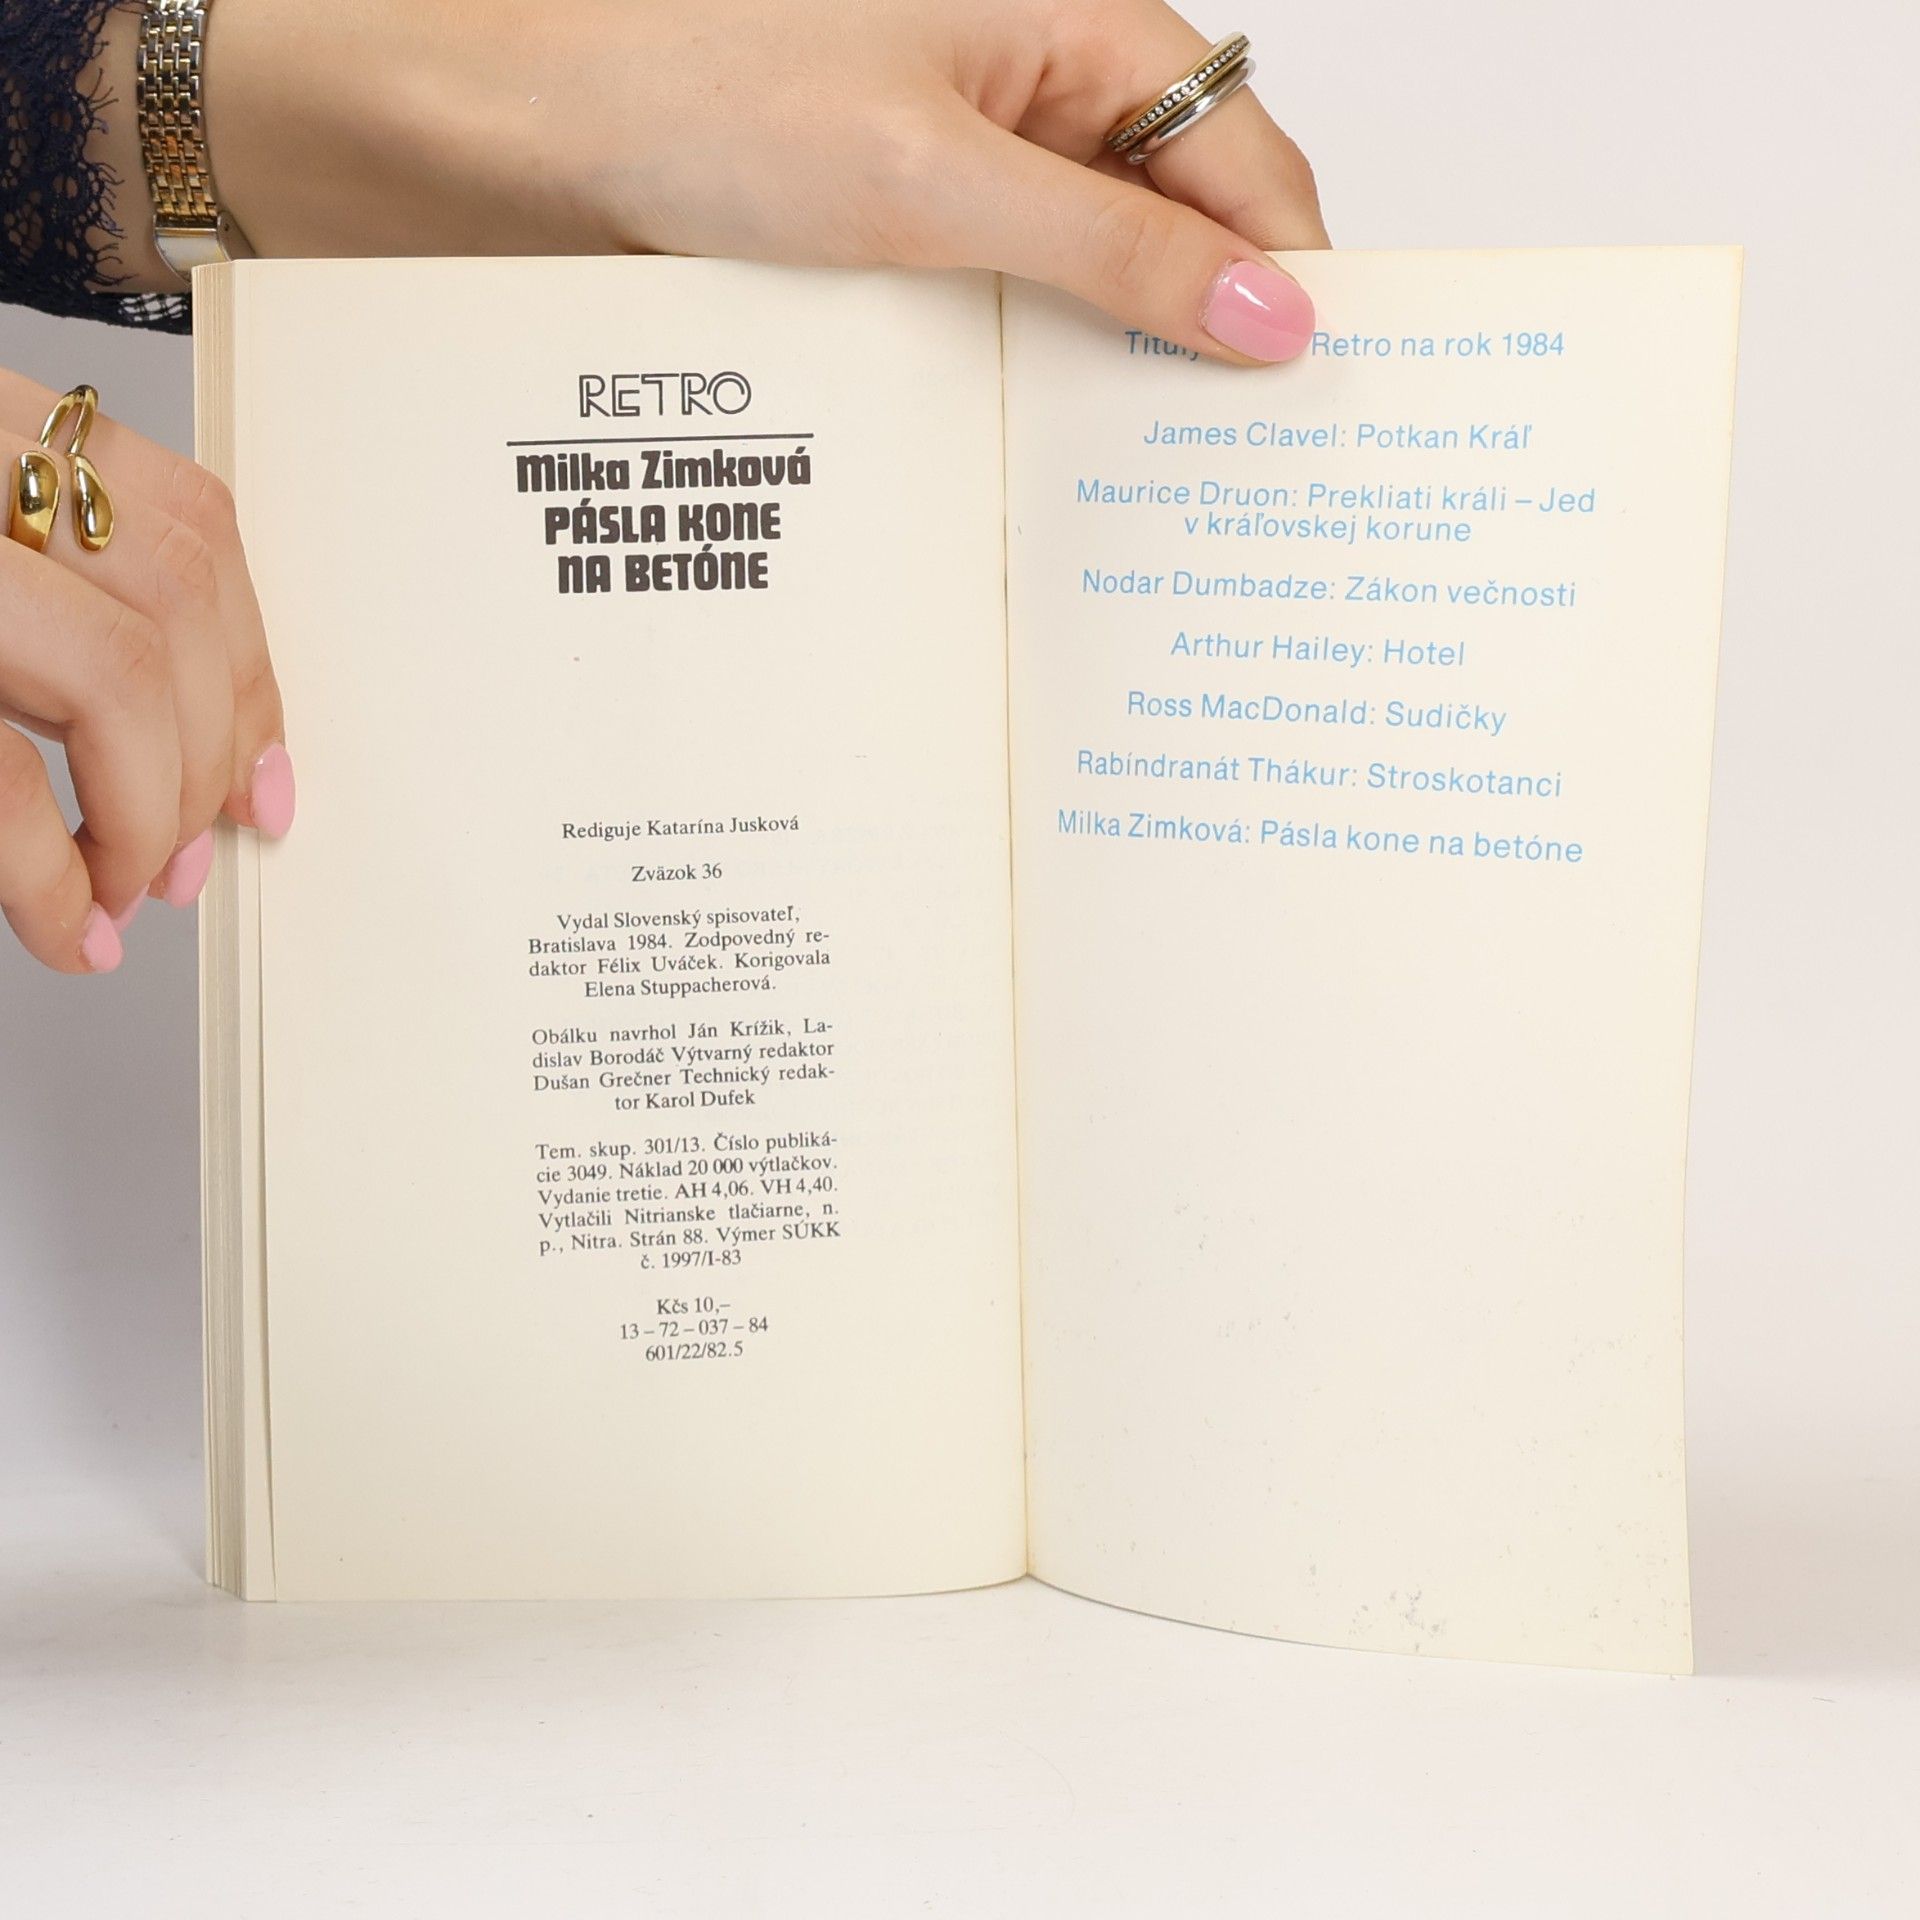 RETRO
Milka Zimková
PÁSLA KONE
NA BETÓNE
Rediguje Katarína Jusková
Zväzok 36
Vydal Slovenský spisovateľ,
Bratislava 1984. Zodpovedný re-
daktor Félix Uváček. Korigovala
Elena Stuppacherová.
Obálku navrhol Ján Krížik, La-
dislav Borodáč Výtvarný redaktor
Dušan Grečner Technický redak-
tor Karol Dufek
Tem. skup. 301/13. Číslo publiká-
cie 3049. Náklad 20 000 výtlačkov.
Vydanie tretie. AH 4,06. VH 4,40.
Vytlačili Nitrianske tlačiarne, n.
p., Nitra. Strán 88. Výmer SÚKK
č. 1997/I-83
Kčs 10,–
13 – 72 – 037 – 84
601/22/82.5
Tituly Retro na rok 1984
James Clavel: Potkan Kráľ
Maurice Druon: Prekliati králi – Jed
v kráľovskej korune
Nodar Dumbadze: Zákon večnosti
Arthur Hailey: Hotel
Ross MacDonald: Sudičky
Rabíndranát Thákur: Stroskotanci
Milka Zimková: Pásla kone na betóne